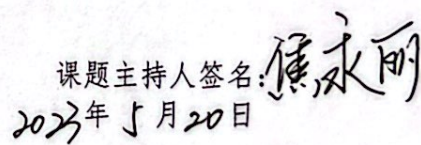 课题主持人签名:焦永丽
2023年5月20日